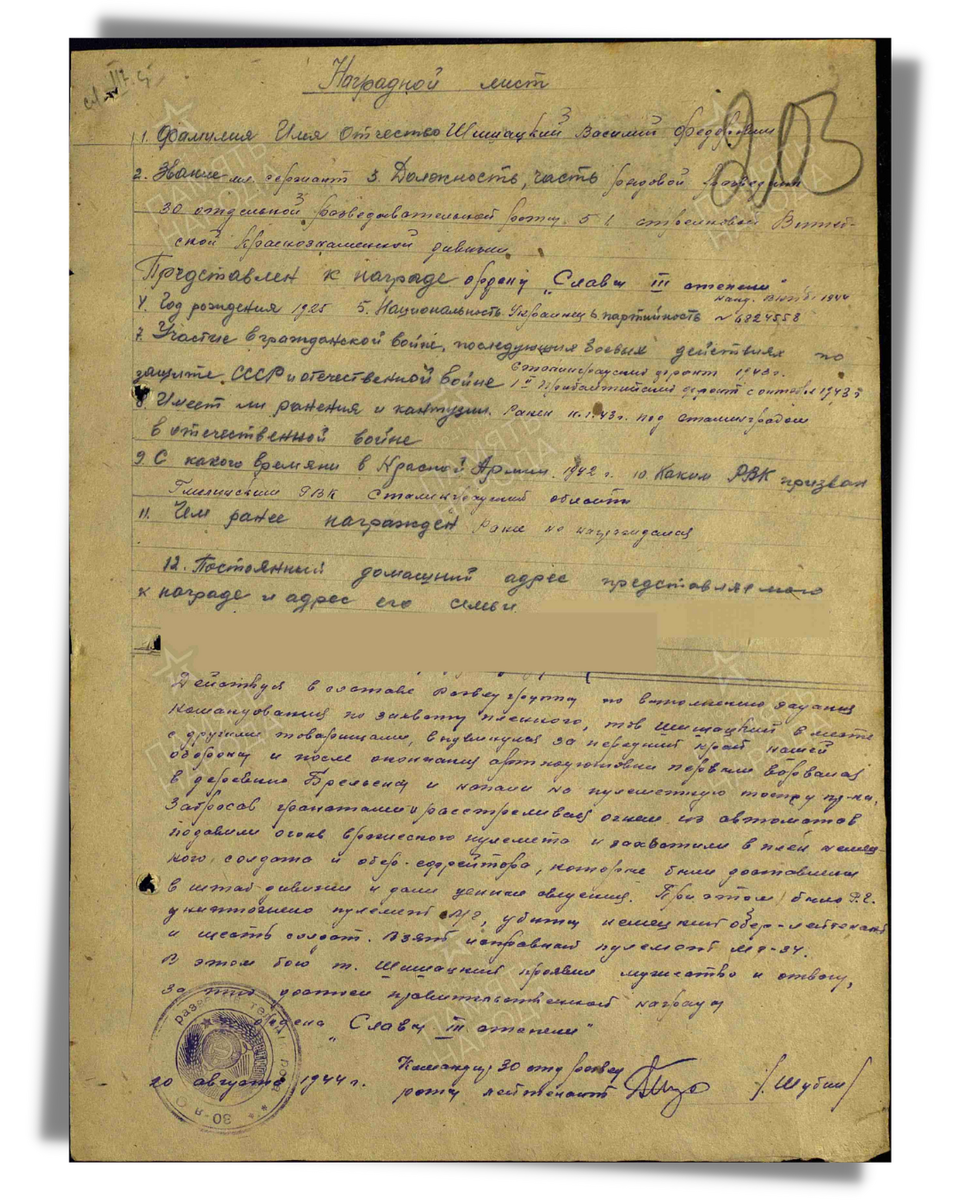 Наградной лист
203
1. Фамилия Имя Отчество Шишацкий Василий Федорович
2. Звание мл. сержант 3. Должность, часть рядовой разведчик
30 отдельной разведывательной роты 51 стрелковой Витеб-
ской Краснознаменной дивизии
Представлен к награде ордену „Славы III степени"
4. Год рождения 1925 5. Национальность Украинец 6 партийность № 6824558
1944
7. Участие в гражданской войне, последующия боевыя действиях по
защите СССР и отечественной войне Сталинградский фронт 1943г.
1й Прибалтийский фронт с октября 1943 г
8. Имеет ли ранения и кантузии. Ранен 11.1.43г. под Сталинградом
в отечественной войне
9. С какого времени в Красной Армии. 1942 г. 10. Каким РВК призван
РВК Сталинградской области
11. Чем ранее награжден Ранее не награждался
12. Постоянный домашний адрес представляемого
к награде и адрес его семьи
Действуя в составе разведгруппы по выполнению задания
командования по захвату пленного, тов Шишацкий вместе
с другими товарищами, выдвинулся за передний край нашей
обороны и после окончания артподготовки первым ворвался
в деревню и напали на пулеметную точку пр-ка.
Забросав гранатами и расстреливая огнем из автоматов
подавили огонь вражеского пулемета и захватили в плен немец-
кого солдата и обер-ефрейтора, которые были доставлены
в штаб дивизии и дали ценные сведения. При этом было
уничтожено пулемет убиты немецкий обер-лейтенант
и шесть солдат. Взят исправный пулемет МГ-34.
В этом бою т. Шишацкий проявил мужество и отвагу,
за что достоин правительственной награды
ордена „Славы III степени"
Командир 30 отд развед
роты лейтенант /Шубин/
20 августа 1944г.